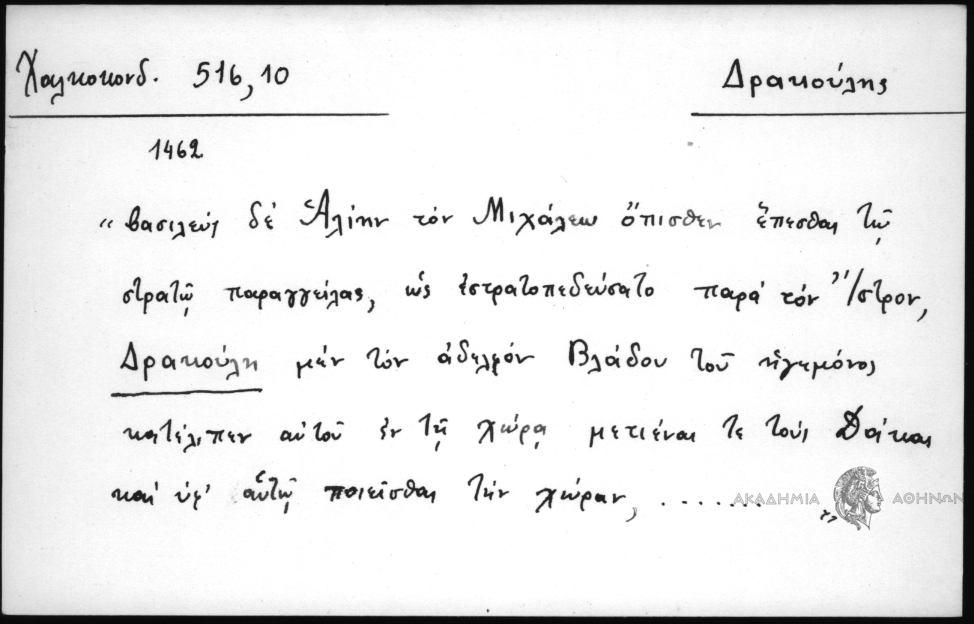 Χαλκοκονδ. 516,10
Δρακούλης
1462
"βασιλεὺς δὲ Ἁλίην τὸν Μιχάλεω ὄπισθεν ἕπεσθαι τῷ
στρατῷ παραγγείλας, ὡς ἐστρατοπεδεύσατο παρὰ τὸν Ἴστρον,
Δρακούλη μὲν τὸν ἀδελφὸν Βλάδου τοῦ ἡγεμόνος
κατέλιπεν αὐτοῦ ἐν τῇ χώρᾳ μετιέναι τε τοὺς Δᾶκας
καὶ ὑφ' αὑτῷ ποιεῖσθαι τὴν χώραν, ......."
ΑΚΑΔΗΜΙΑ ΑΘΗΝΩΝ